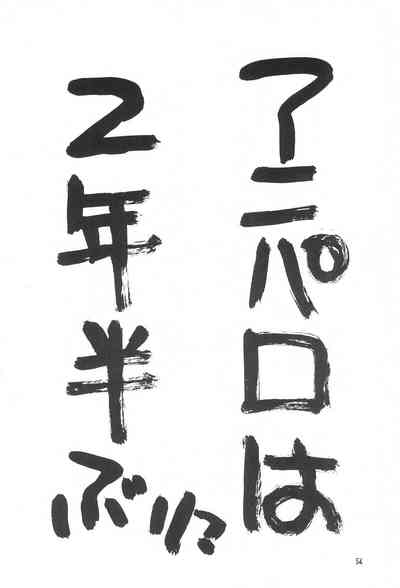 アニパロは
2年半ぶりに
54